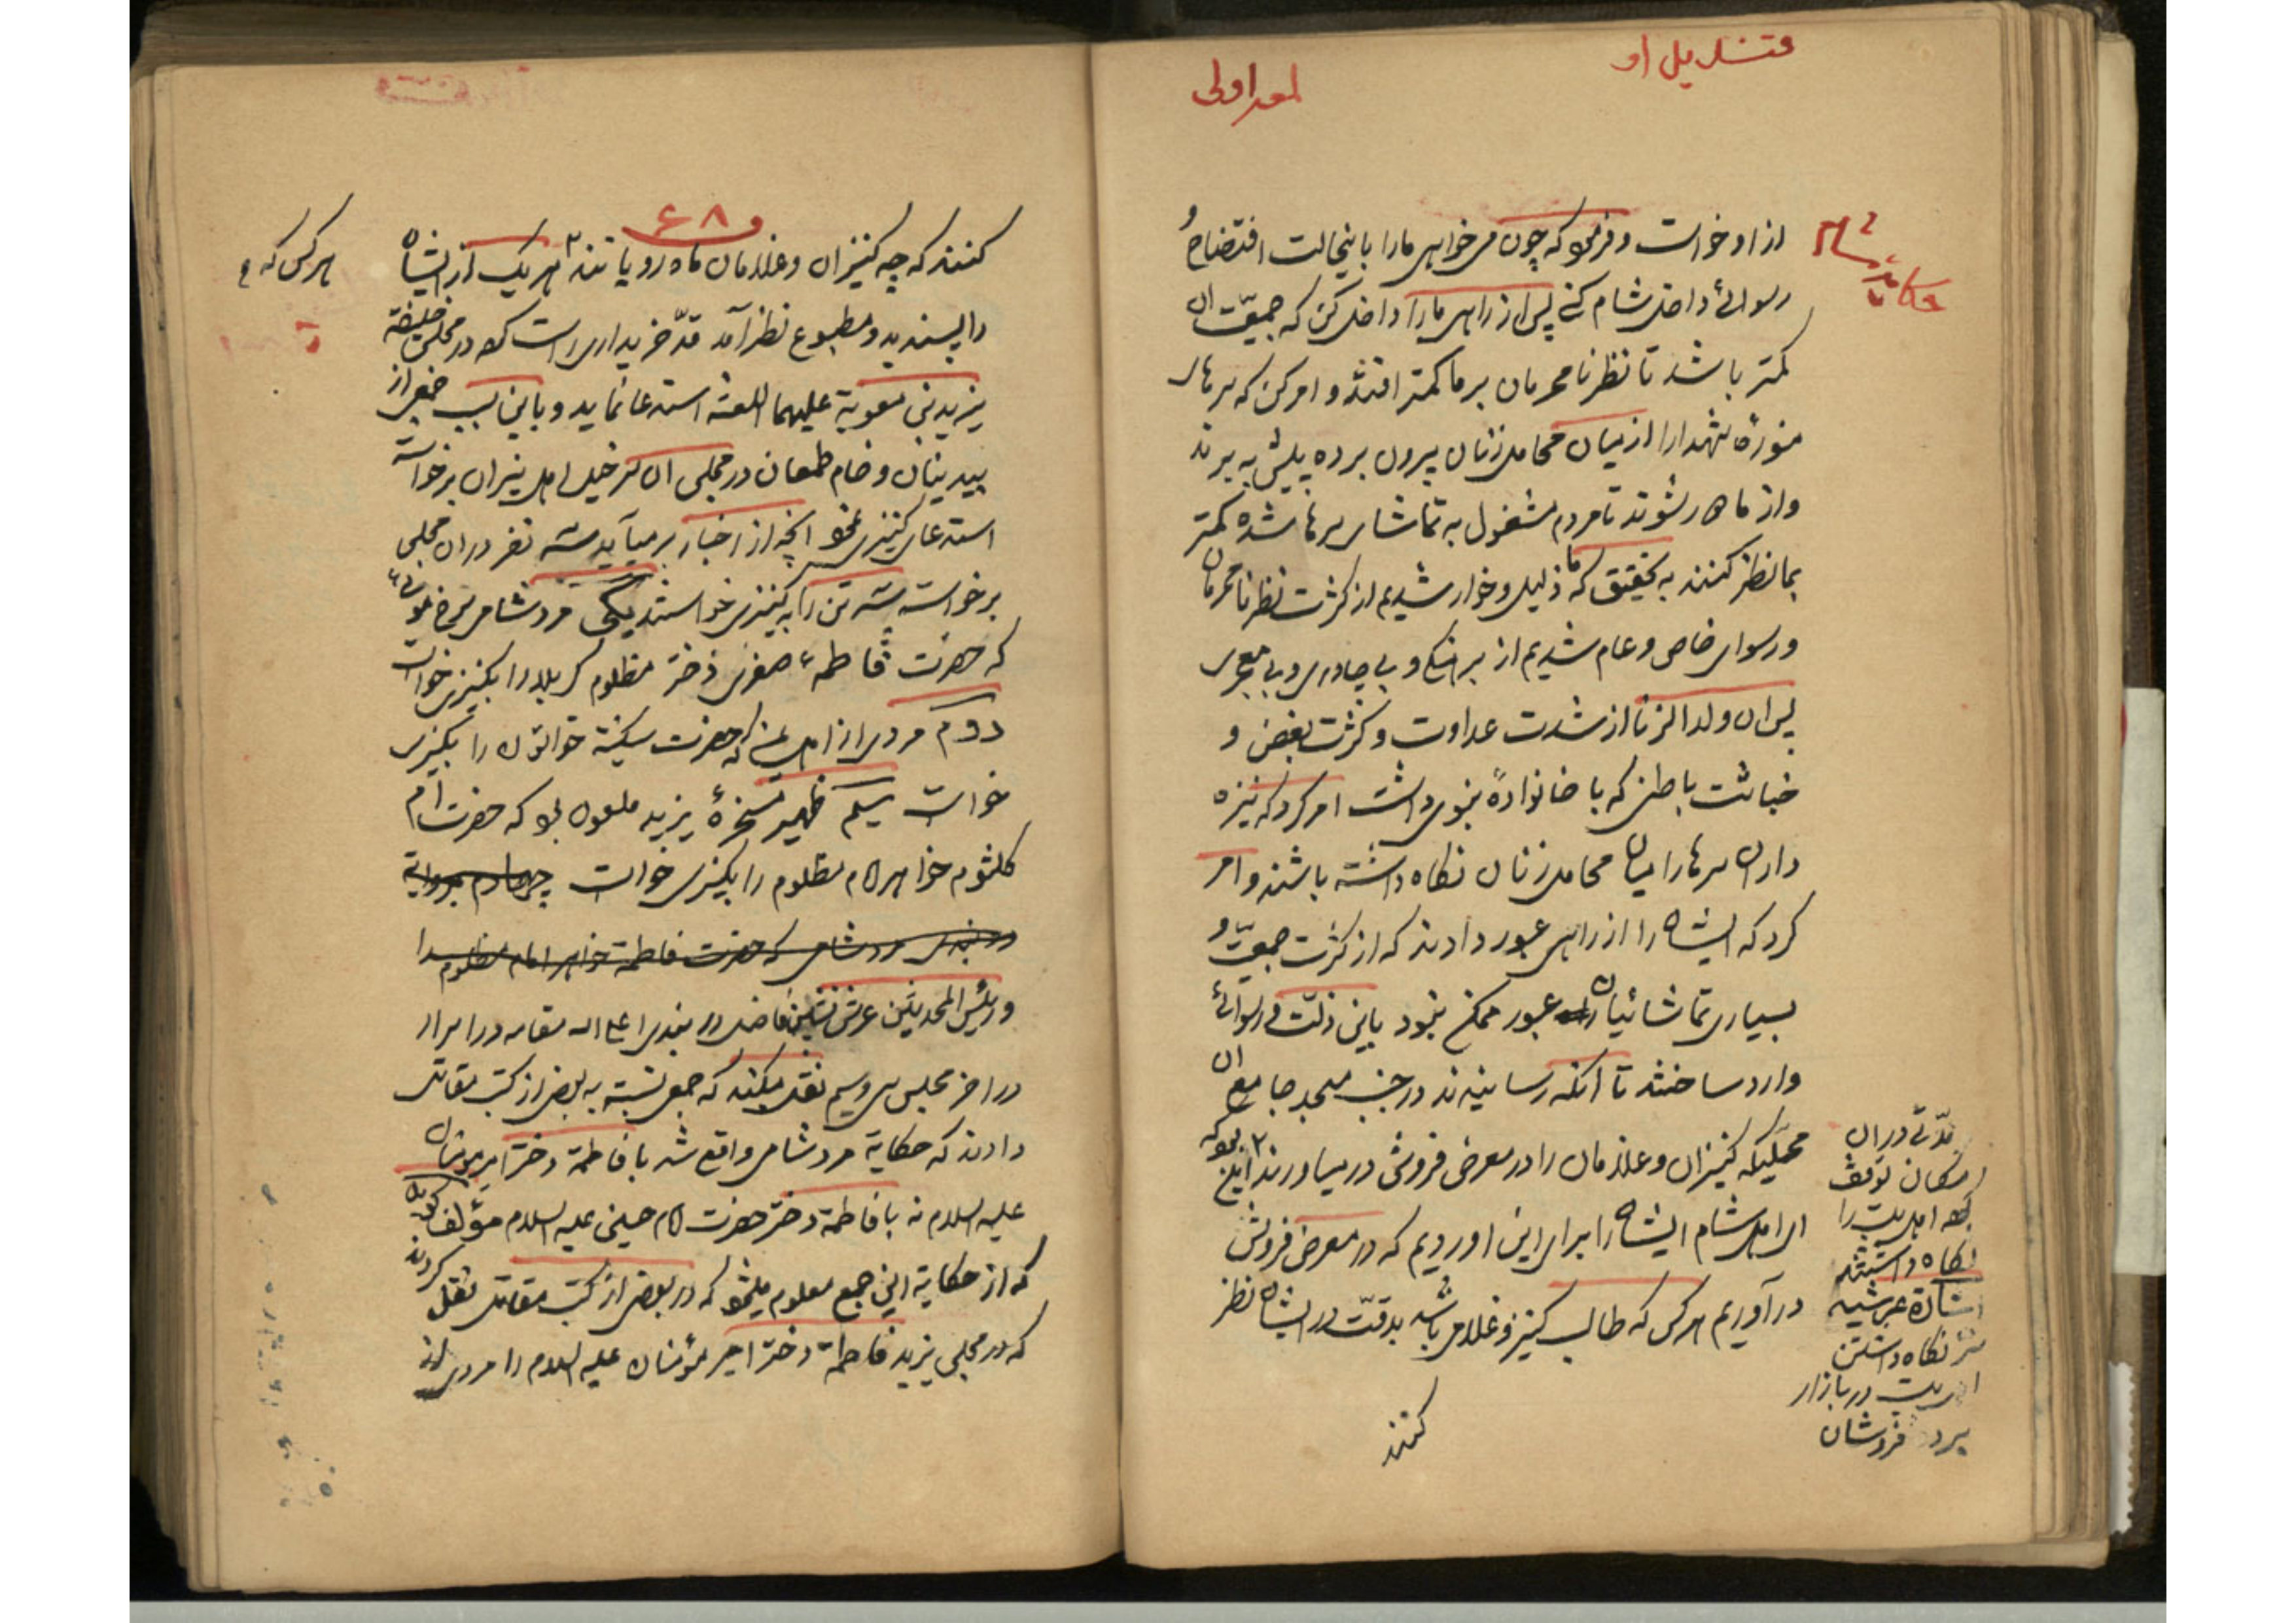 قندیل او
لمعه اولی
از او خواست و فرمود که چون می خواهی ما را باینحالت افتضاح و
رسوائی داخل شام کنی پس از راهی ما را داخل کن که جمعیت ان
کمتر باشد تا نظر نامحرمان بر ما کمتر افتد و امر کن که سرهای
منوره شهدا را از میان محامل زنان بیرون برده پیش به برند
و از ما دور شوند تا مردم مشغول به تماشای سرها شده کمتر
بما نظر کنند به تحقیق که ما ذلیل و خوار شدیم از کثرت نظر نامحرمان
و رسوای خاص و عام شدیم از برهنگی و بی چادری و بی معجری
پس ان ولد الزنا از شدت عداوت و کثرت بغض و
خباثت باطن که با خانوادهٔ نبوی داشت امر کرد که نیزه
داران سرها را میان محامل زنان نگاه داشته باشند و امر
کرد که ایشان را از راهی عبور دادند که از کثرت جمعیت و
بسیاری تماشائیان عبور ممکن نبود باین ذلت و رسوائی
وارد ساختند تا آنکه رسانیدند در جنب مسجد جامع ان
محلیکه کنیزان و غلامان را در معرض فروش در میاورند
ای اهل شام ایشان را برای این اوردیم که در معرض فروش
در آوریم هر کس که طالب کنیز و غلامی باشد بدقت در ایشان نظر
کنند
مدتی در ان
مکان توقف
اهل بیت را
نگاه داشتند
نگاه داشتن
اهل بیت در بازار
فروشان
۶۸
کنند که چه کنیزان و غلامان ماه رویانند هر یک از ایشان
هر کس که
را پسندید و مطبوع نظر آمد خریداری است که در مجلس خلیفه
یزید بن معویة علیهما اللعنة استدعا نماید و باین سبب جمعی از
بیدینان و خام طمعان در مجلس ان سرخیل اهل نیران برخواست
استدعای کنیزی نمود انچه از اخبار بر میآید سه نفر در ان مجلس
برخواسته سه تن را به کنیزی خواستند یکی مرد شامی سرخ موئی
که حضرت فاطمه صغری دختر مظلوم کربلا را بکنیزی خواست
دوم مردی از اهل که حضرت سکینة خواتون را بکنیزی
خواست سیم ظهیر مسخرهٔ یزید ملعون بود که حضرت ام
کلثوم خواهر امام مظلوم را بکنیزی خواست چهارم بروایة
مرد شامی که حضرت فاطمة خواهر امام مظلوم
و رئیس المحدثین عرش نشین فاضل دربندی اعلی الله مقامه در اسرار
در اخر مجلس سی و سیم نقل میکند که جمعی نسبت به بعضی از کتب مقاتل
دادند که حکایة مرد شامی واقع شد با فاطمة دختر امیر مومنان
علیه السلام نه با فاطمة دختر حضرت امام حسین علیه السلام مؤلف گوید
که از حکایة این جمع معلوم میشود که در بعضی از کتب مقاتل نقل کردند
که در مجلس یزید فاطمة دختر امیر مؤمنان علیه السلام را مردی از